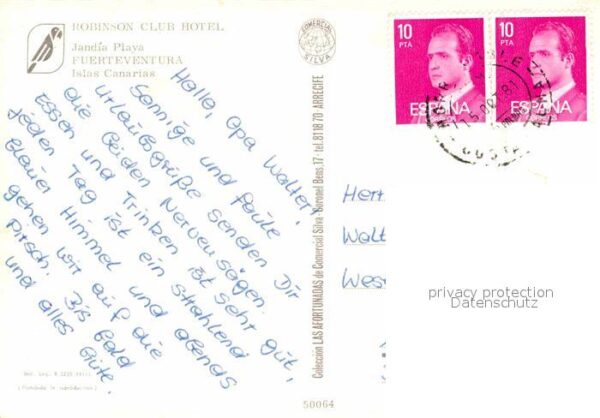 ROBINSON CLUB HOTEL
Jandía Playa
FUERTEVENTURA
Islas Canarias
Hallo, Opa Walter,
Sonnige und faule
Urlaubsgrüße senden Dir
die beiden Nervensägen.
Essen und Trinken ist sehr gut,
jeden Tag ist ein strahlend
blauer Himmel und abends
gehen wir auf die
Pirsch. Bis bald
und alles Gute.
COMERCIAL SILVA
Colección LAS AFORTUNADAS de Comercial Silva - Coronel Bens, 17 - tel. 81 18 70 - ARRECIFE
10 PTA
ESPAÑA
10 PTA
ESPAÑA
CORREOS
Herr
Walt
Wes
privacy protection
Datenschutz
Dep. Leg. B.
(Prohibida la reproducción)
50064